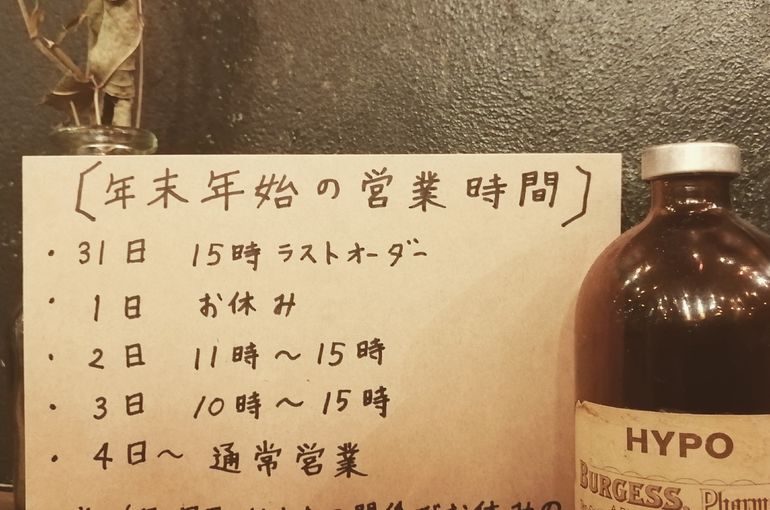 〔年末年始の営業時間〕
・31日 15時ラストオーダー
・1日 お休み
・2日 11時〜15時
・3日 10時〜15時
・4日〜 通常営業
HYPO
BURGESS. Pharm